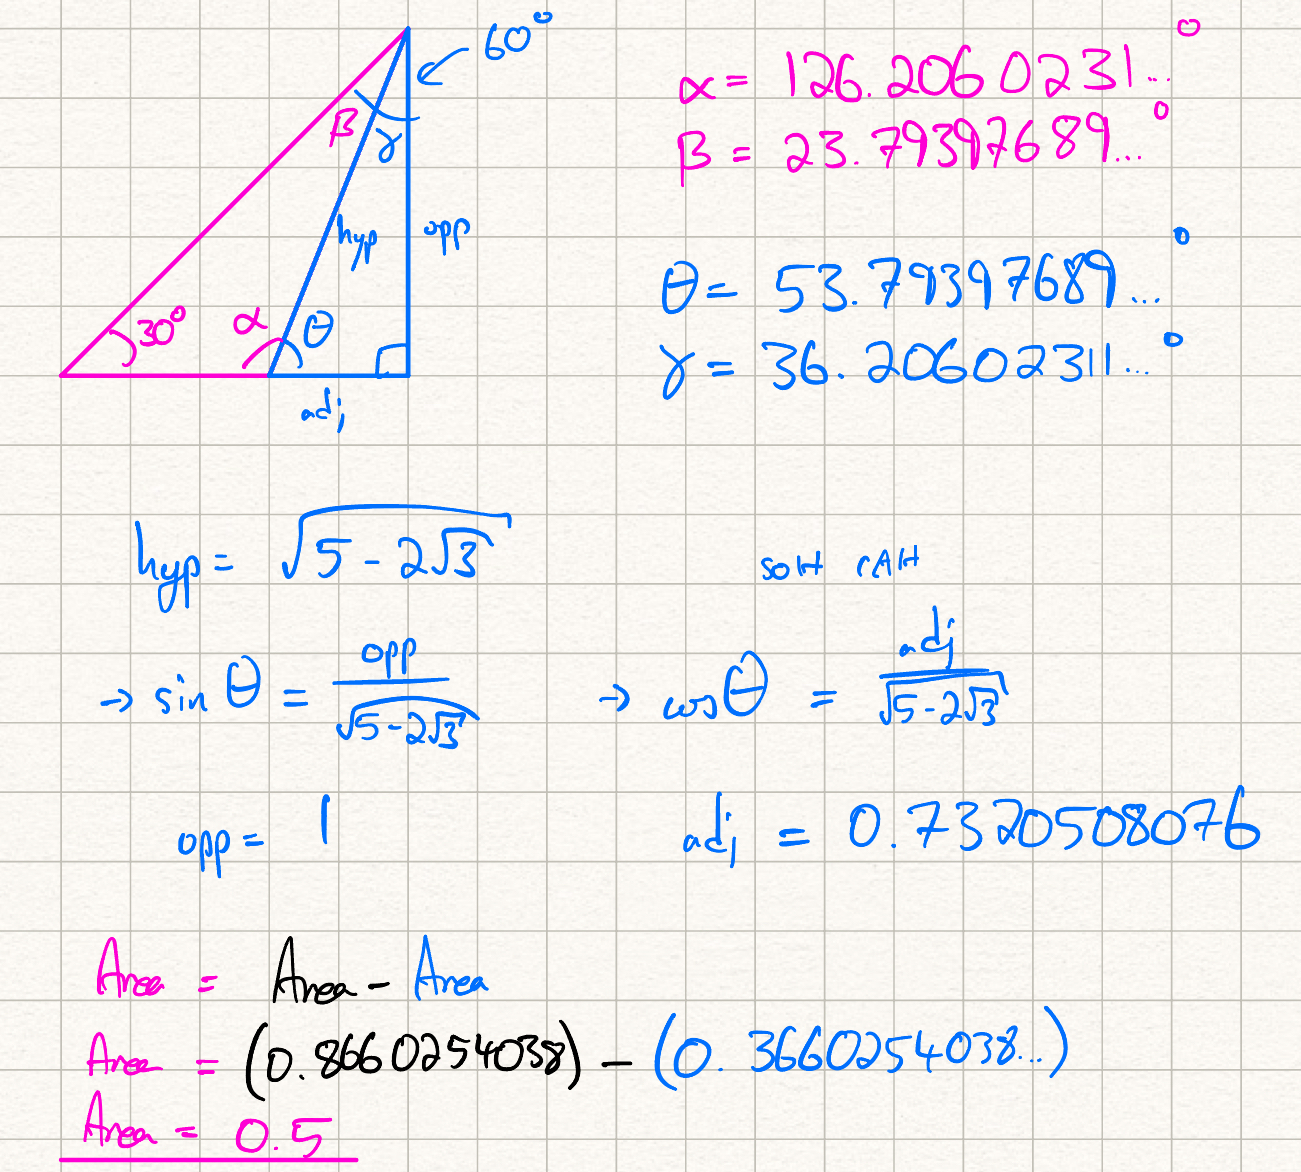 60°
β
γ
hyp
opp
30°
α
θ
adj
α = 126.2060231...°
β = 23.79397689...°
θ = 53.79397689...°
γ = 36.20602311...°
hyp = √(5 - 2√3)
SOH CAH
→ sin θ = opp / √(5 - 2√3)
→ cos θ = adj / √(5 - 2√3)
opp = 1
adj = 0.7320508076
Area = Area - Area
Area = (0.8660254038) - (0.3660254038...)
Area = 0.5